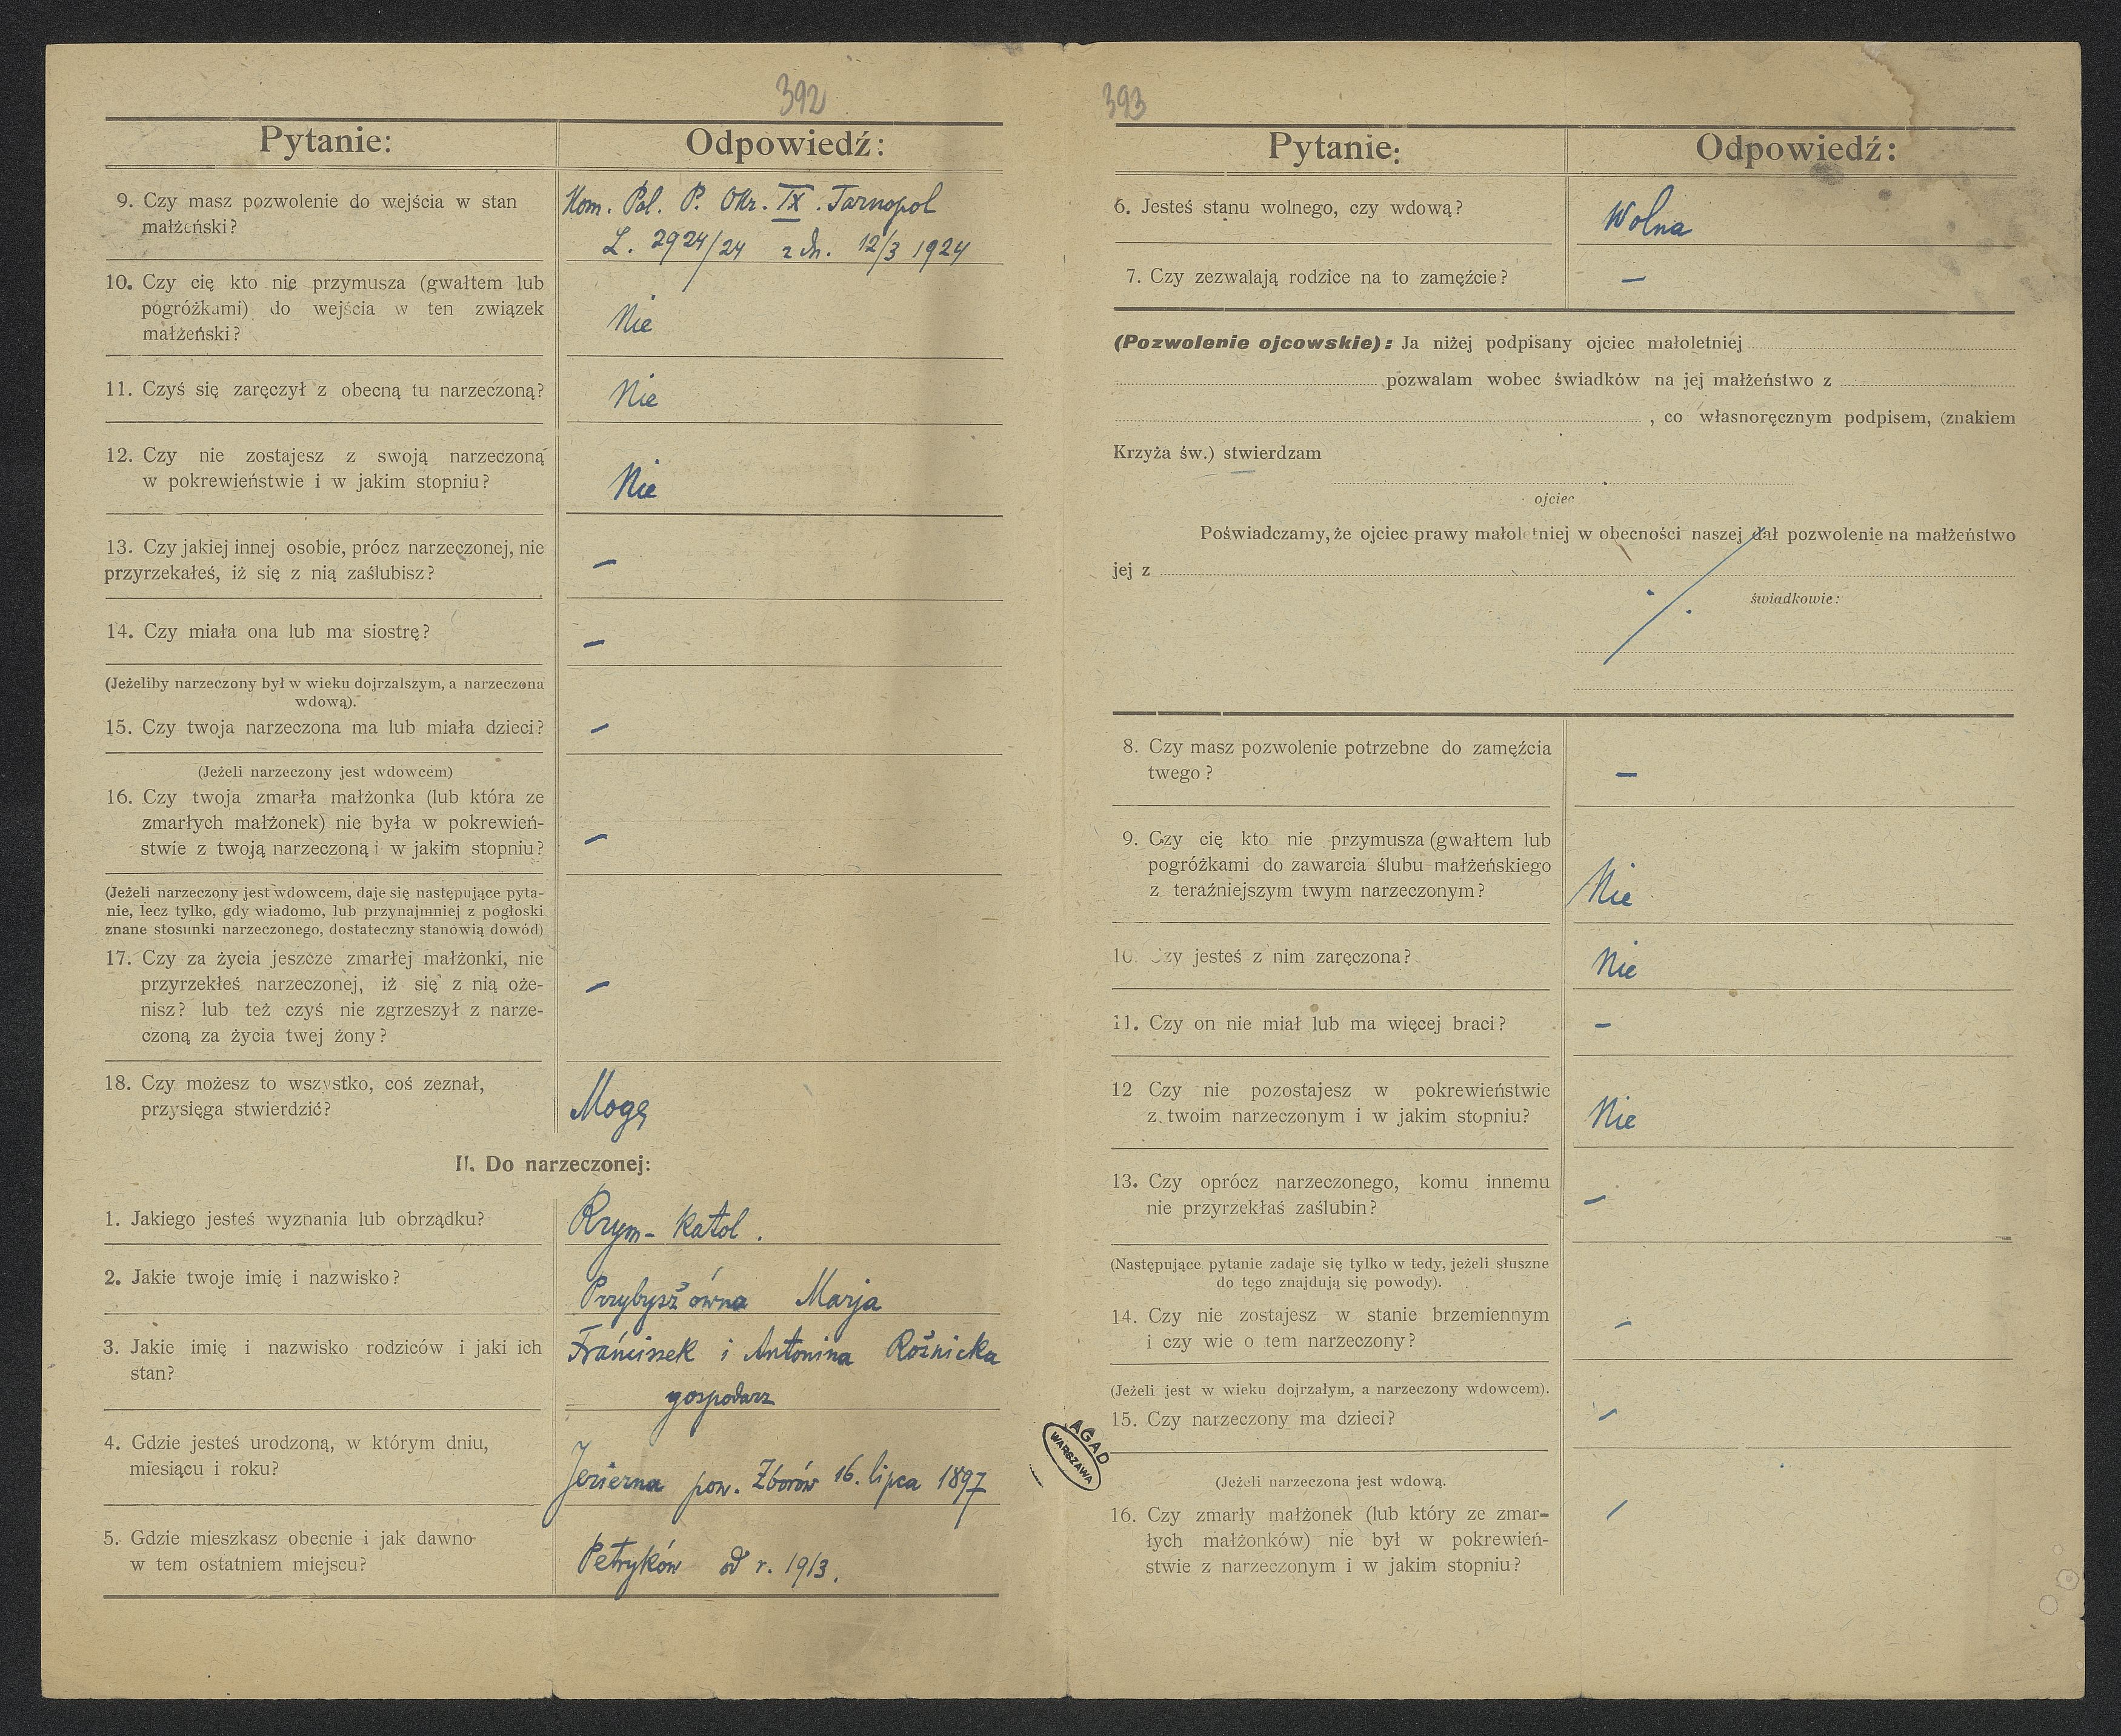 392
Pytanie:
Odpowiedź:
9. Czy masz pozwolenie do wejścia w stan
małżeński?
Kom. Pol. P. Okr. IX. Tarnopol
L. 2924/24 z dn. 12/3 1924
10. Czy cię kto nie przymusza (gwałtem lub
pogróżkami) do wejścia w ten związek
małżeński?
Nie
11. Czyś się zaręczył z obecną tu narzeczoną?
Nie
12. Czy nie zostajesz z swoją narzeczoną
w pokrewieństwie i w jakim stopniu?
Nie
13. Czy jakiej innej osobie, prócz narzeczonej, nie
przyrzekałeś, iż się z nią zaślubisz?
–
14. Czy miała ona lub ma siostrę?
–
(Jeżeliby narzeczony był w wieku dojrzalszym, a narzeczona
wdową).
15. Czy twoja narzeczona ma lub miała dzieci?
–
(Jeżeli narzeczony jest wdowcem)
16. Czy twoja zmarła małżonka (lub która ze
zmarłych małżonek) nie była w pokrewień-
stwie z twoją narzeczoną i w jakim stopniu?
–
(Jeżeli narzeczony jest wdowcem, daje się następujące pyta-
nie, lecz tylko, gdy wiadomo, lub przynajmniej z pogłoski
znane stosunki narzeczonego, dostateczny stanowią dowód)
17. Czy za życia jeszcze zmarłej małżonki, nie
przyrzekłeś narzeczonej, iż się z nią oże-
nisz? lub też czyś nie zgrzeszył z narze-
czoną za życia twej żony?
–
18. Czy możesz to wszystko, coś zeznał,
przysięga stwierdzić?
Mogę
II. Do narzeczonej:
1. Jakiego jesteś wyznania lub obrządku?
Rzym-katol.
2. Jakie twoje imię i nazwisko?
Przybyszówna Marja
3. Jakie imię i nazwisko rodziców i jaki ich
stan?
Franciszek i Antonina Rożnicka
gospodarz
4. Gdzie jesteś urodzoną, w którym dniu,
miesiącu i roku?
Jezierna pow. Zborów 16. lipca 1897
5. Gdzie mieszkasz obecnie i jak dawno
w tem ostatniem miejscu?
Petryków od r. 1913.
393
Pytanie:
Odpowiedź:
6. Jesteś stanu wolnego, czy wdową?
Wolna
7. Czy zezwalają rodzice na to zamęźcie?
–
(Pozwolenie ojcowskie): Ja niżej podpisany ojciec małoletniej
pozwalam wobec świadków na jej małżeństwo z
, co własnoręcznym podpisem, (znakiem
Krzyża św.) stwierdzam
ojciec
Poświadczamy, że ojciec prawy małoletniej w obecności naszej dał pozwolenie na małżeństwo
jej z
świadkowie:
8. Czy masz pozwolenie potrzebne do zamęźcia
twego?
–
9. Czy cię kto nie przymusza (gwałtem lub
pogróżkami do zawarcia ślubu małżeńskiego
z teraźniejszym twym narzeczonym?
Nie
10. Czy jesteś z nim zaręczona?
Nie
11. Czy on nie miał lub ma więcej braci?
–
12 Czy nie pozostajesz w pokrewieństwie
z twoim narzeczonym i w jakim stopniu?
Nie
13. Czy oprócz narzeczonego, komu innemu
nie przyrzekłaś zaślubin?
–
(Następujące pytanie zadaje się tylko w tedy, jeżeli słuszne
do tego znajdują się powody).
14. Czy nie zostajesz w stanie brzemiennym
i czy wie o tem narzeczony?
–
(Jeżeli jest w wieku dojrzałym, a narzeczony wdowcem).
15. Czy narzeczony ma dzieci?
–
(Jeżeli narzeczona jest wdową.
16. Czy zmarły małżonek (lub który ze zmar-
łych małżonków) nie był w pokrewień-
stwie z narzeczonym i w jakim stopniu?
–
AGAD
WARSZAWA